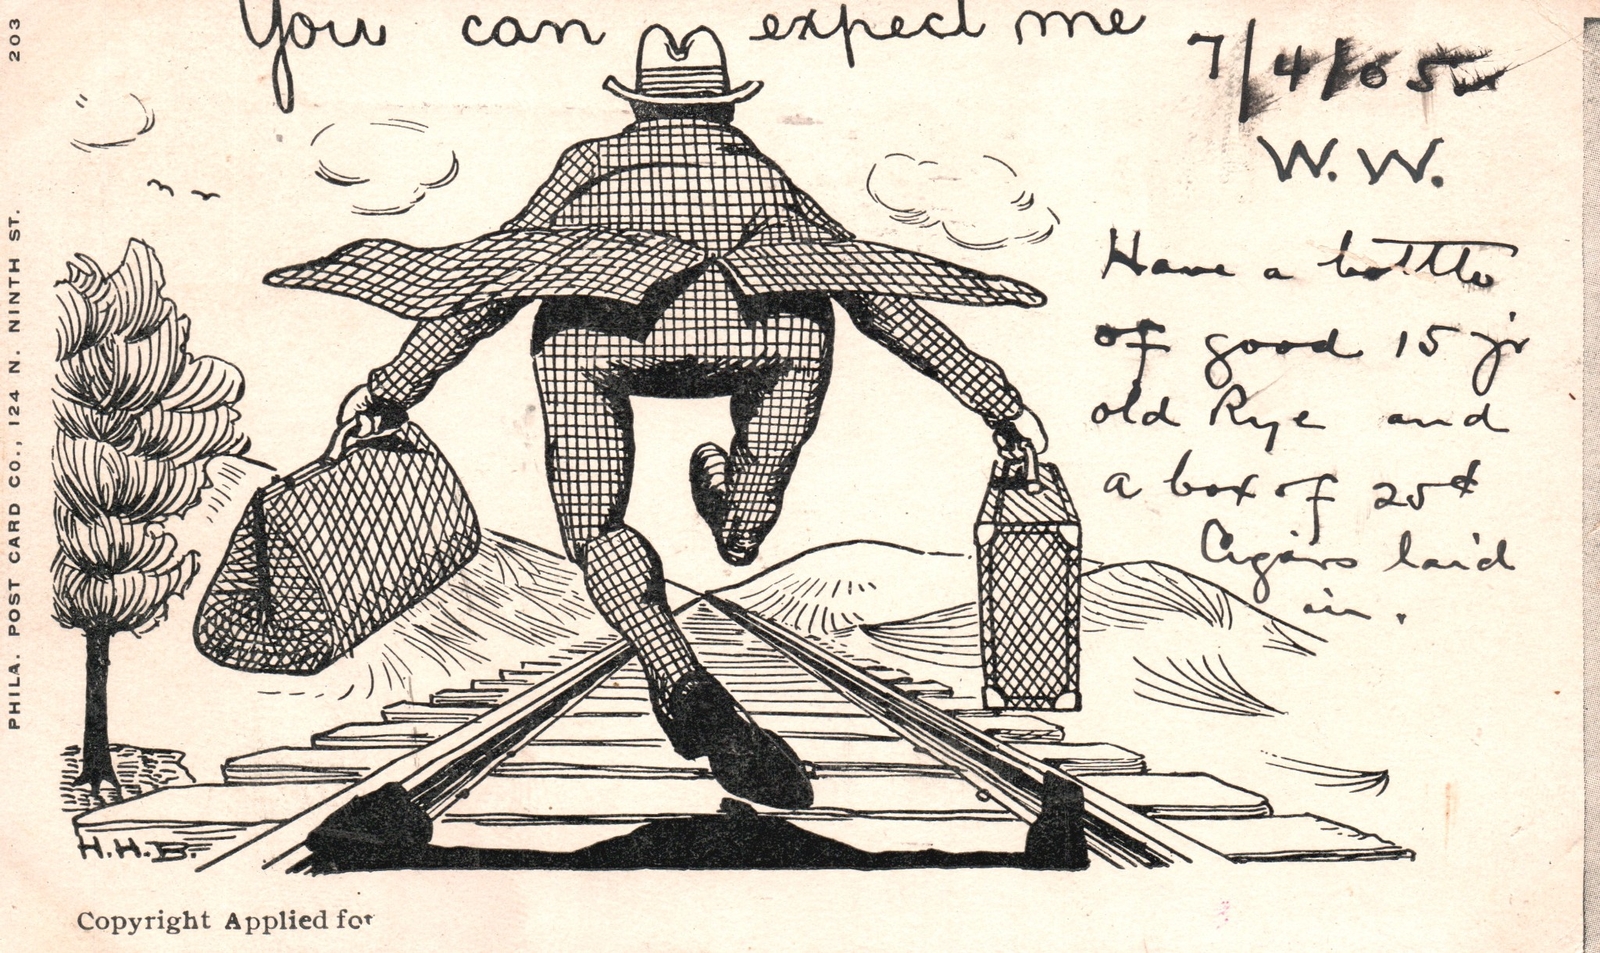 You can expect me
7/4/05
W. W.
Have a bottle
of good 15 yr
old Rye and
a box of 25¢
Cigars laid
in.
203
PHILA. POST CARD CO., 124 N. NINTH ST.
H.H.B.
Copyright Applied for